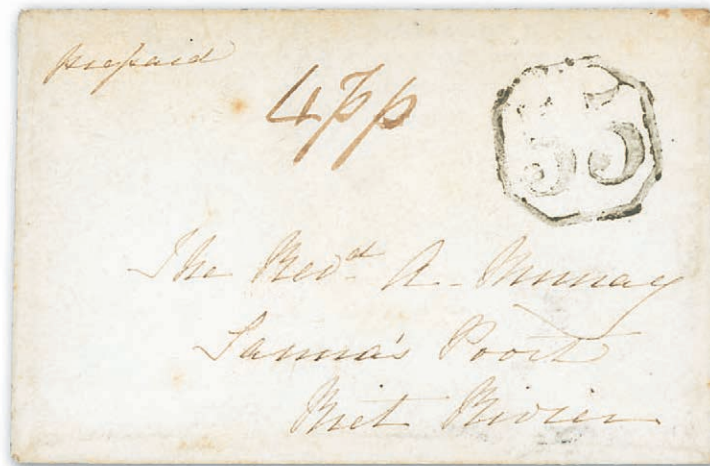 prepaid
4 pp
55
The Revd A. Murray
Sanna's Poort
Riet Rivier